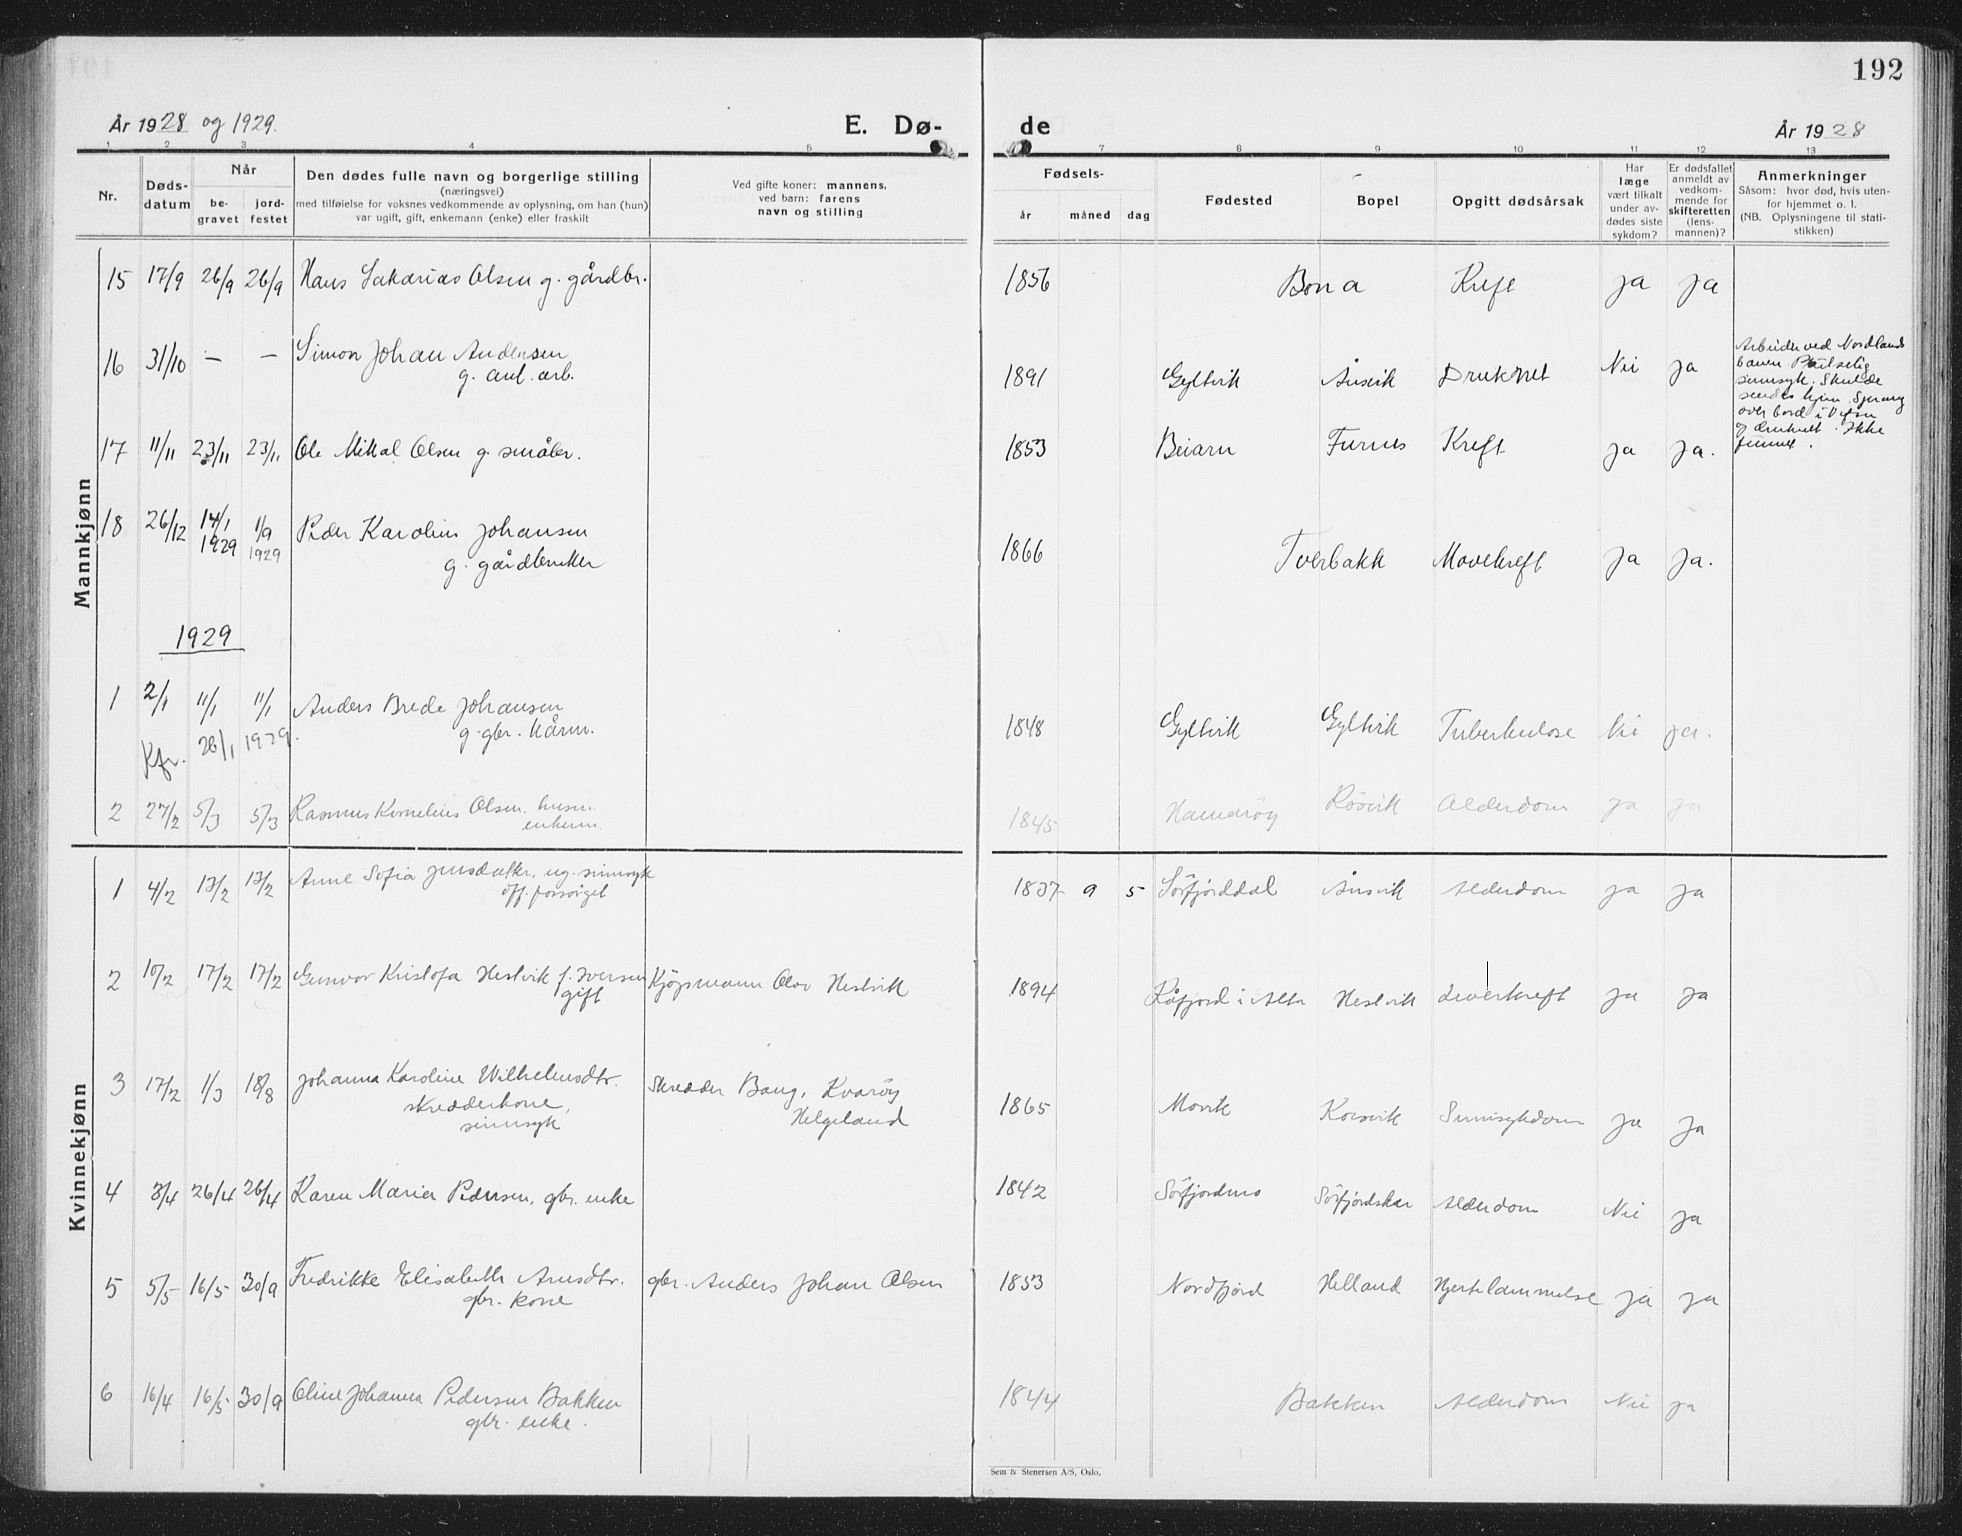 192
År 1928 og 1929.
E. Dø-
de
År 1928
1 2 3 4 5 7 8 9 10 11 12 13
Nr.
Døds-
datum
Når
be-
gravet
jord-
festet
Den dødes fulle navn og borgerlige stilling
(næringsvei)
med tilføielse for voksnes vedkommende av oplysning, om han (hun)
var ugift, gift, enkemann (enke) eller fraskilt
Ved gifte koner: mannens,
ved barn: farens
navn og stilling
Fødsels-
år måned dag
Fødested
Bopel
Opgitt dødsårsak
Har
læge
vært tilkalt
under av-
dødes siste
sykdom?
Er dødsfallet
anmeldt av
vedkom-
mende for
skifteretten
(lens-
mannen)?
Anmerkninger
Såsom: hvor død, hvis uten-
for hjemmet o. l.
(NB. Oplysningene til stati-
stikken)
Mannkjønn
15 17/9 26/9 26/9 Hans Sakarias Olsen g. gårdbr. 1856 Bona Kreft ja ja
16 31/10 — — Simon Johan Andersen 1891 Gyltvik Ånsvik Druknet Nei ja
g. anl. arb.
Arbeider ved Nordlands
banen Plutselig
sinnsyk. Skulde
sendes hjem. Sprang
over bord i Vefsn
og druknet. Ikke
funnet.
17 11/11 23/11 23/11 Ole Mikal Olsen g. småbr. 1853 Beiarn Furnes Kreft ja ja.
18 26/12 14/1 1929 1/9 1929 Peder Karolius Johansen 1866 Tverbakk Mavekreft ja ja.
g. gårdbruker
1929
1 2/1 11/1 11/1 Anders Brede Johansen 1848 Gyltvik Gyltvik Tuberkulose Nei ja.
g. gbr. kårm.
Kfr. 26/1 1929.
2 27/2 5/3 5/3 Rasmus Kornelius Olsen. husm. 1845 Hamarøy Røsvik Alderdom ja ja
enkem.
Kvinnekjønn
1 4/2 13/2 13/2 Anne Sofia Jensdatter, ug. sinnsyk 1837 9 5 Sørfjorddal Ånsvik Alderdom ja ja
off. forsørget
2 10/2 17/2 17/2 Gunvor Kristofa Hestvik f. Iversen Kjøpmann Olav Hestvik 1894 Råfjord i Alta Hestvik Leverkreft ja ja
gift
3 17/2 1/3 18/8 Johanna Karoline Wilhelmsdtr. Skredder Bang, Kvarøy 1865 Movik Korsvik Sinnsykdom ja ja
skredderkone, Helgeland
sinnsyk
4 3/4 26/4 26/4 Karen Maria Pedersen, gbr. enke 1842 Sørfjordmo Sørfjordskar Alderdom Nei ja
5 5/5 16/5 30/9 Fredrikke Elisabeth Arnsdtr. gbr. Anders Johan Olsen 1853 Nordfjord Helland Hjertelammelse ja ja
gbr. kone
6 16/4 16/5 30/9 Oline Johanna Pedersen Bakken 1844 Bakken Alderdom Nei ja
gbr. enke.
Sem & Stenersen A/S, Oslo.